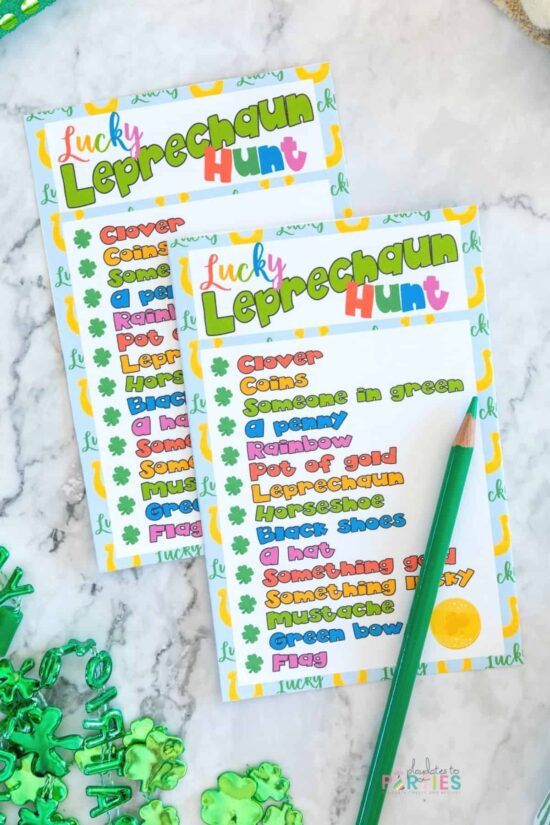 Lucky
Leprechaun
Hunt
Clover
Coins
Some
A penny
Rainb
Pot o
Lepr
Horse
Black
A ha
Some
Some
Must
Green
Flag
Lucky
Leprechaun
Hunt
Clover
Coins
Someone in green
A penny
Rainbow
Pot of gold
Leprechaun
Horseshoe
Black shoes
A hat
Something gold
Something lucky
Mustache
Green bow
Flag
Lucky
Lucky
playdates to
PARTIES